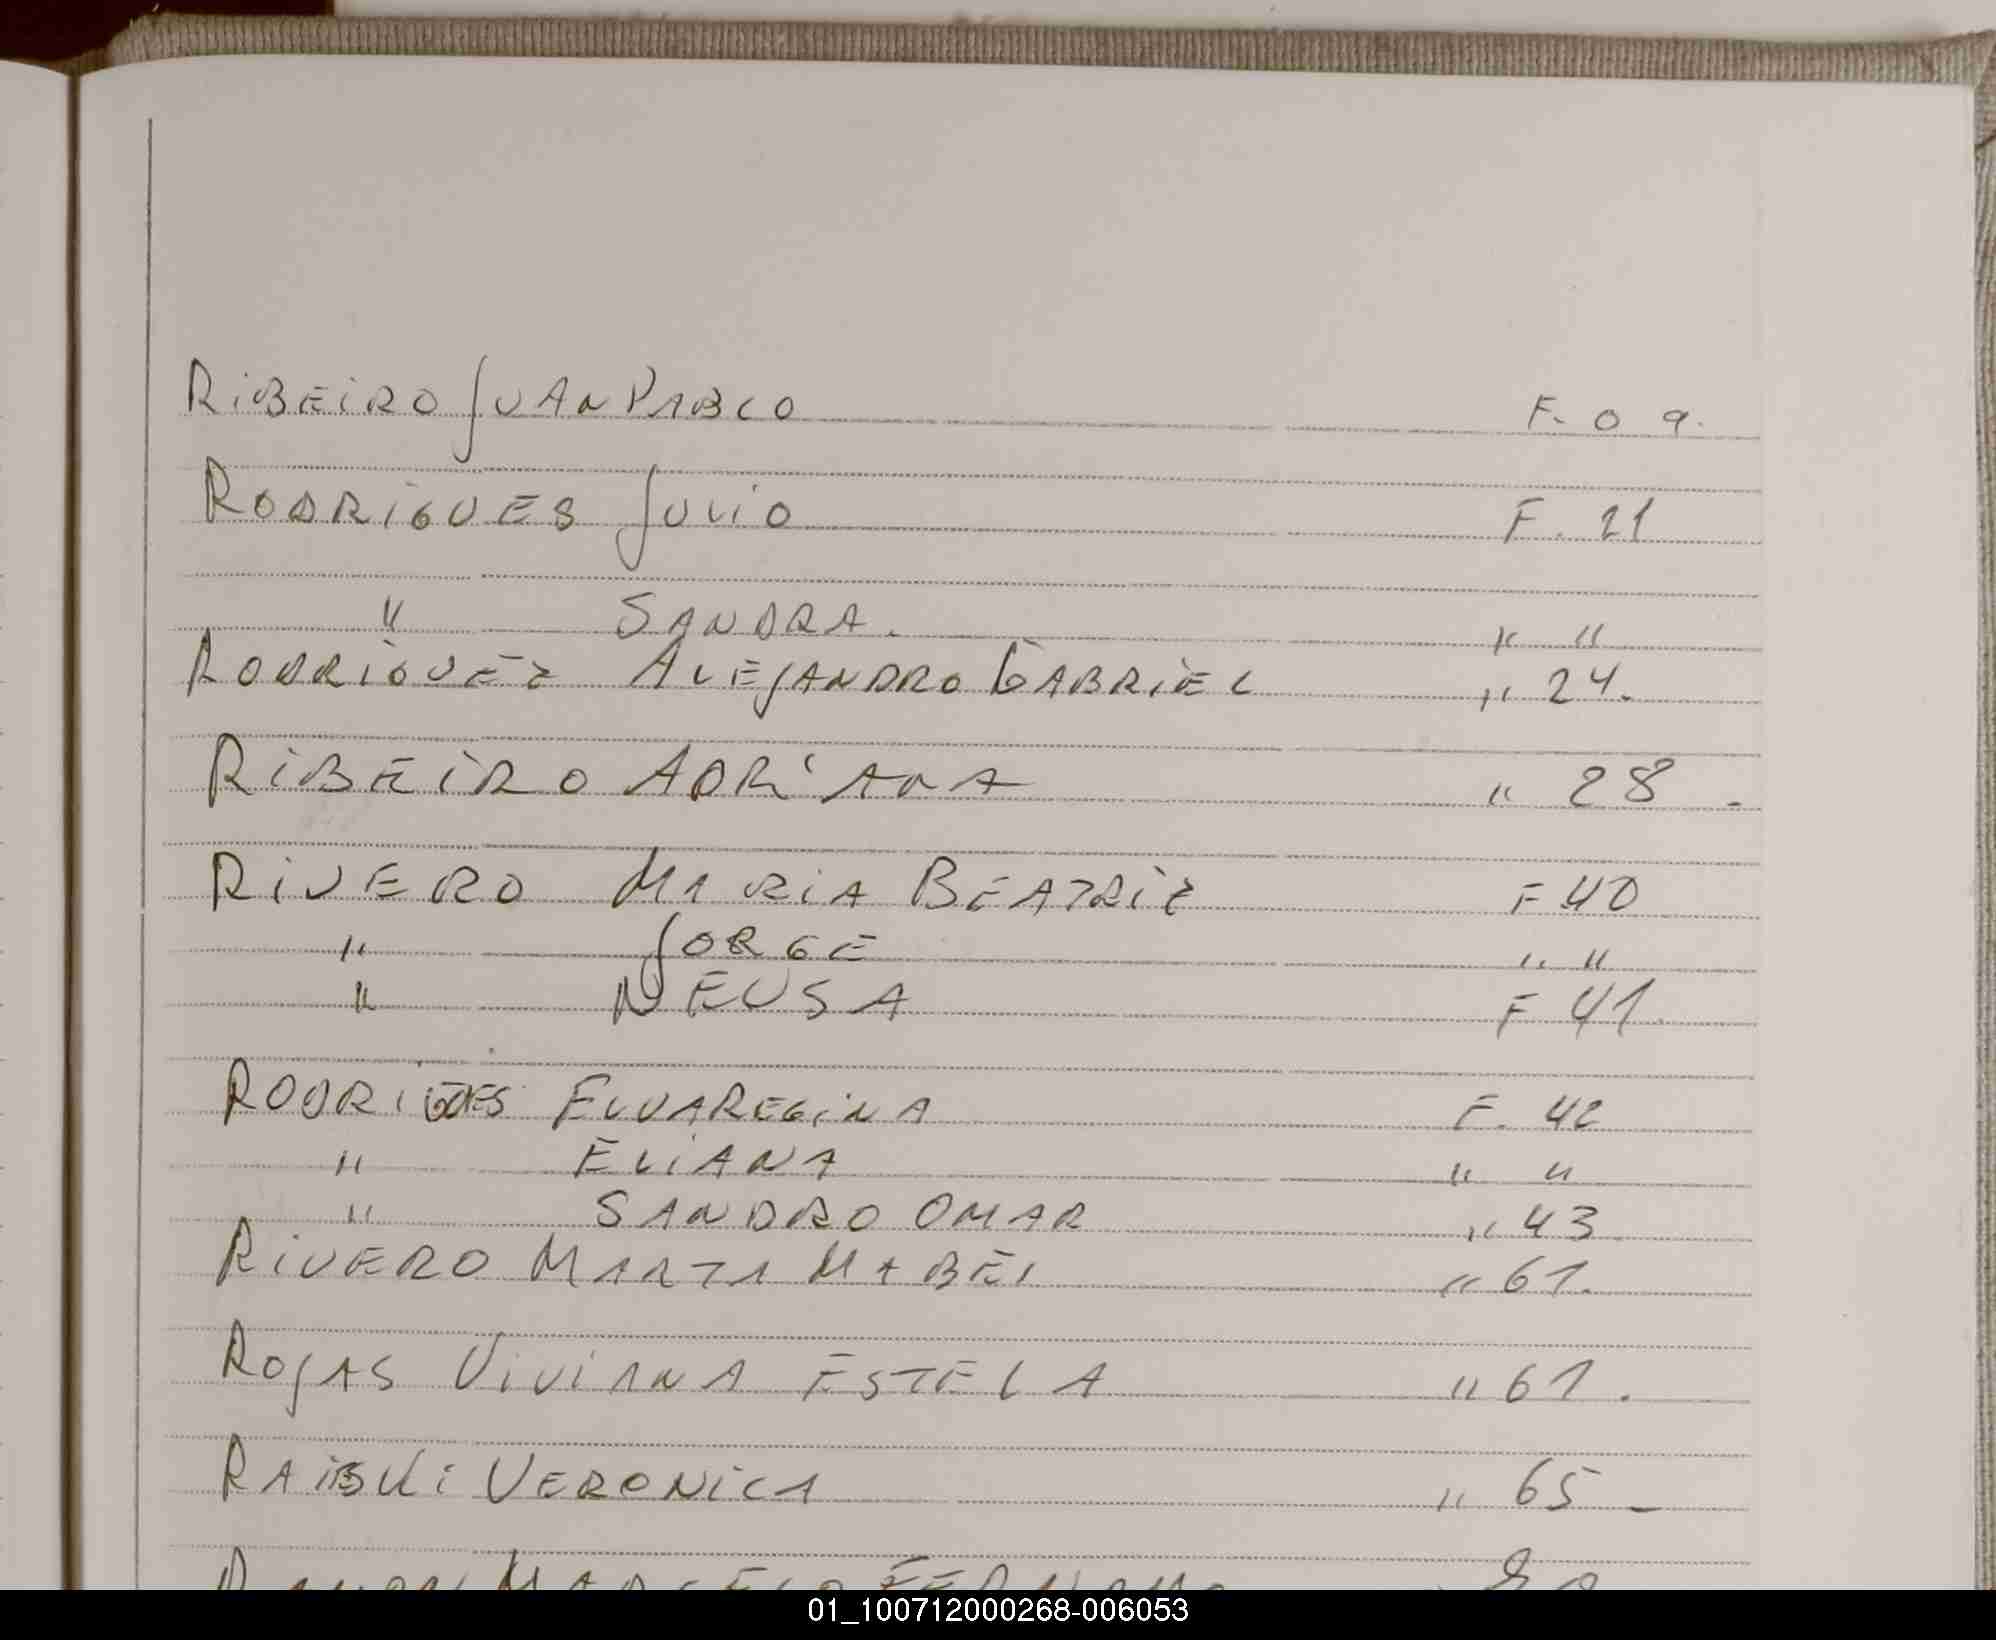 RiBEiRO JUAN PABLO F. 0 9.
RODRiGUES JULiO F. 21
" SANDRA. " "
RODRiGUEZ ALEJANDRO GABRiEL " 24.
RiBEiRO ADRiANA " 28.
RiVERO MARiA BEATRiZ F 40
" JORGE " "
" NEUSA F 41.
RODRiGUES ELVAREGiNA F. 42
" ELiANA " "
" SANDRO OMAR " 43
RiVERO MARTA MABEL " 61.
ROJAS ViViANA ESTELA " 61.
VERONiCA " 65 -
MARCELO FERNANDO
01_100712000268-006053